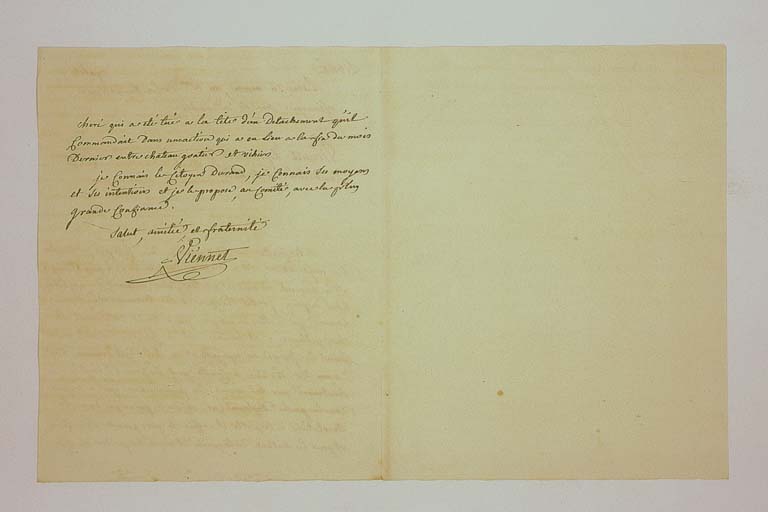 chiré qui a été tué a la tête d'un Detachement qu'il
Commandait Dans une action qui a eu Lieu a la fin du mois
Dernier entre chateau gontier et vihiers
je Connais le Citoyen Durand, je Connais Ses moyens
et Ses intentions et je le propose, au Comité, avec la plus
grande Confiance.
Salut, amitié, et fraternité
Viennet